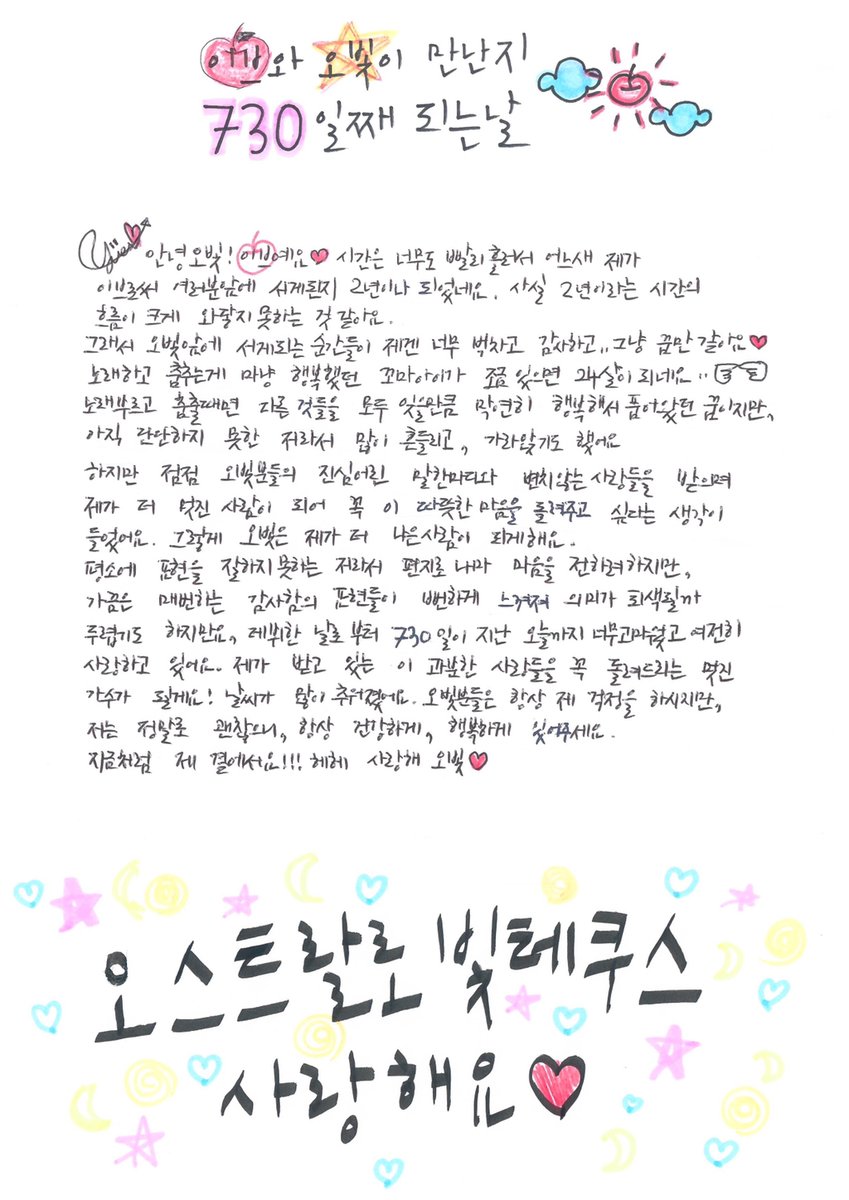 이브와 오빛이 만난지
730일째 되는날
Yves
안녕 오빛! 이브예요♥ 시간은 너무도 빨리 흘러서 어느새 제가
이브로써 여러분앞에 서게된지 2년이나 되었네요. 사실 2년이라는 시간의
흐름이 크게 와닿지못하는 것 같아요.
그래서 오빛앞에 서게되는 순간들이 제겐 너무 벅차고 감사하고.. 그냥 꿈만 같아요♥
노래하고 춤추는게 마냥 행복했던 꼬마아이가 조금 있으면 24살이 되네요..
노래부르고 춤출때면 다른 것들을 모두 잊을만큼 막연히 행복해서 품어왔던 꿈이지만,
아직 단단하지 못한 저라서 많이 흔들리고, 가라앉기도 했어요
하지만 점점 오빛분들의 진심어린 말한마디와 변치않는 사랑들을 받으며
제가 더 멋진 사람이 되어 꼭 이 따뜻한 마음을 돌려주고 싶다는 생각이
들었어요. 그렇게 오빛은 제가 더 나은사람이 되게해요.
평소에 표현을 잘하지못하는 저라서 편지로나마 마음을 전하려하지만,
가끔은 매번하는 감사함의 표현들이 뻔하게 느껴져 의미가 퇴색될까
두렵기도 하지만요, 데뷔한 날로부터 730일이 지난 오늘까지 너무고마웠고 여전히
사랑하고 있어요. 제가 받고 있는 이 과분한 사랑들을 꼭 돌려드리는 멋진
가수가 될게요! 날씨가 많이 추워졌어요. 오빛분들은 항상 제 걱정을 하시지만,
저는 정말로 괜찮으니, 항상 건강하게, 행복하게 있어주세요.
지금처럼 제 곁에서요!!! 헤헤 사랑해 오빛♥
오스트랄로빛테쿠스
사랑해요♥